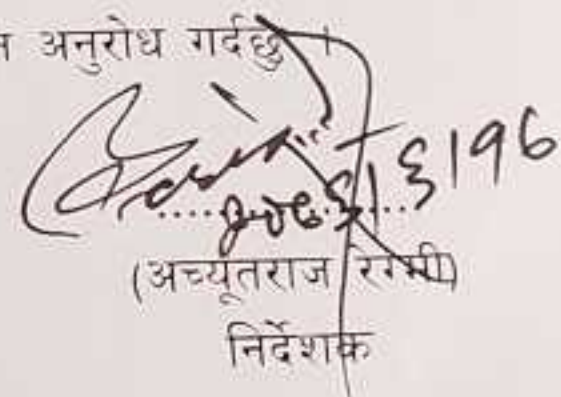 न अनुरोध गर्दछु ।
(अच्यूतराज रेग्मी)
निर्देशक